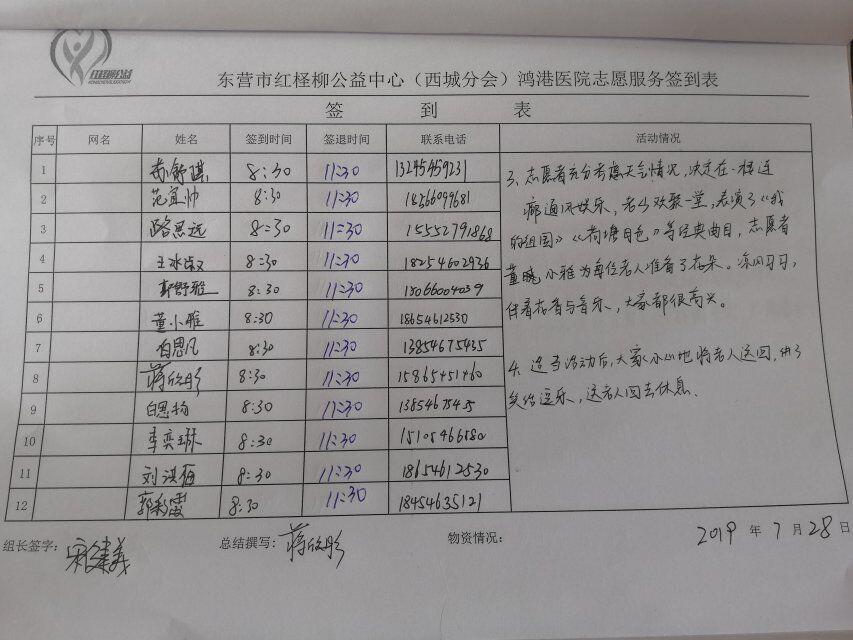 红柽柳公益
东营市红柽柳公益中心（西城分会）鸿港医院志愿服务签到表
签 到 表
序号 网名 姓名 签到时间 签退时间 联系电话 活动情况
1 8:30 11:30 13245459231
2 范宜帅 8:30 11:30 18566099681
3 路思远 8:30 11:30 15552791868
4 王冰 8:30 11:30 18254602936
5 郭舒雅 8:30 11:30 15066004039
6 董小雅 8:30 11:30 18654612530
7 白思凡 8:30 11:30 13854675435
8 蒋欣彤 8:30 11:30
9 白思 8:30 11:30 13854675435
10 李奕琳 8:30 11:30
11 刘洪梅 8:30 11:30 18654612530
12 郭 8:30 11:30 18454635121
3、志愿者充分考虑天气情况，决定在一楼连
廊通风娱乐，老少欢聚一堂，表演了《我
的祖国》《荷塘月色》等经典曲目，志愿者
董 小雅为每位老人准备了 。凉风习习，
伴着 与音乐，大家都很高兴。
4、 活动后，大家小心地将老人送回，
逗乐，送老人回去休息.
组长签字： 总结撰写：蒋欣彤 物资情况： 2019 年 7 月 28 日